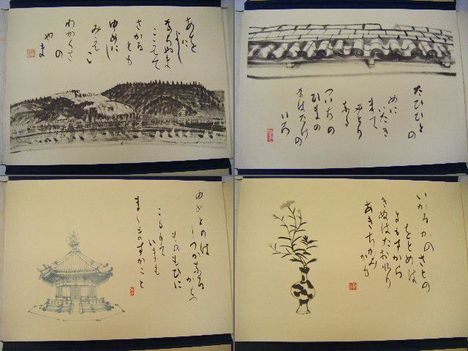 あをに
よし
ならやま
こえて
さかる
とも
ゆめにし
みえこ
わかくさ
の
やま
たひひとの
めに
いたき
まて
みとり
なる
ついちの
ひまの
なはたけの
いろ
ゆめとのは
しつかなる
かな
ものもひに
こもりて
いまも
ましますかこと
いかるかのさとの
をとめは
よもすから
きぬはたおれり
あきちかみ
かも